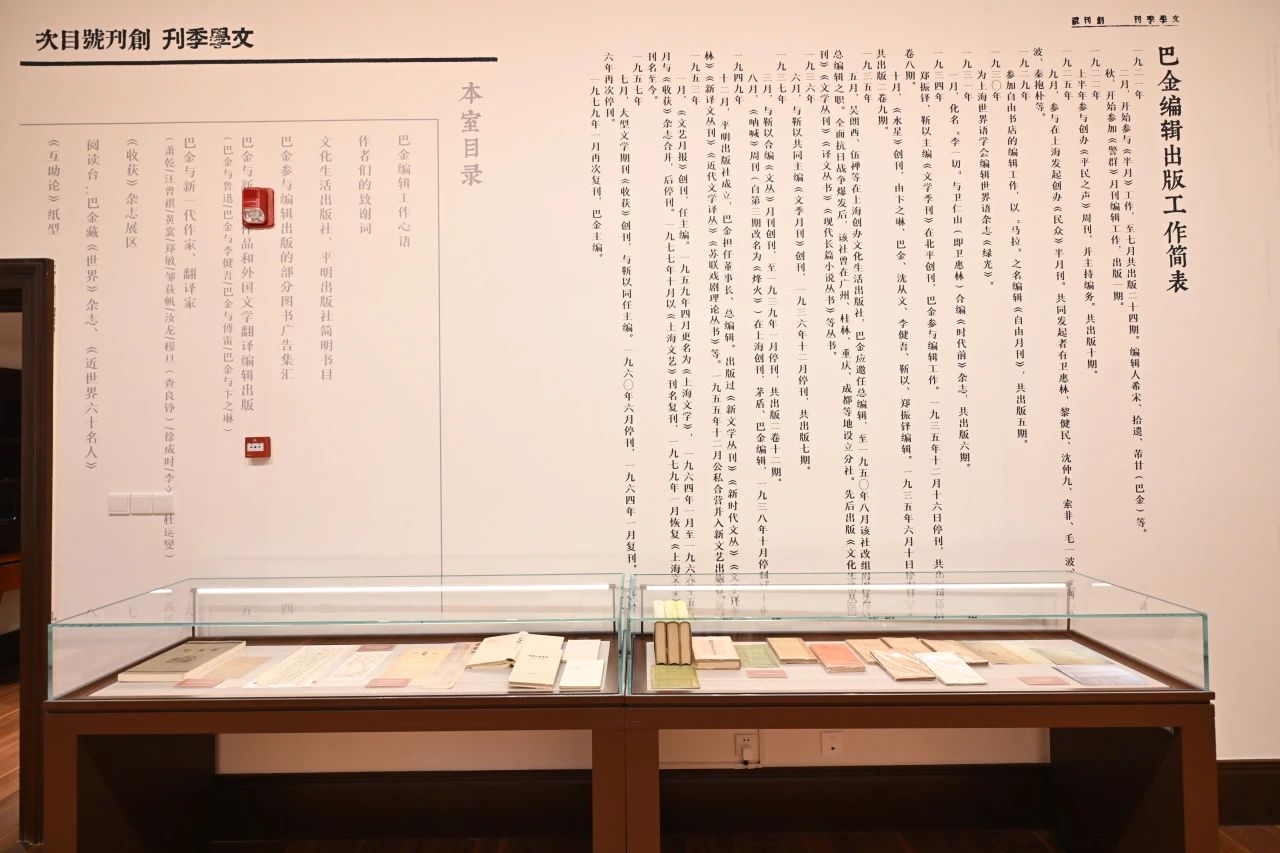 文學季刊 創刊號
巴金编辑出版工作简表
一九二一年
二月，开始参与《半月》工作，至七月共出版二十四期。编辑人希宋、拾遗、芾甘（巴金）等。
秋，开始参加《警群》月刊编辑工作，出版一期。
一九二二年
上半年参与创办《平民之声》周刊，并主持编务。共出版十期。
一九二五年
九月，参与在上海发起创办《民众》半月刊。共同发起者有卫惠林、黎健民、沈仲九、索非、毛一波、
波、秦抱朴等。
一九二九年
参加自由书店的编辑工作，以“马拉”之名编辑《自由月刊》，共出版五期。
一九三〇年
为上海世界语学会编辑世界语杂志《绿光》。
一九三一年
一月，化名“李一切”与卫仁山（即卫惠林）合编《时代前》杂志，共出版六期。
一九三四年
郑振铎、靳以主编《文学季刊》在北平创刊，巴金参与编辑工作。一九三五年十二月十六日停刊，共出
卷八期。
十月，《水星》创刊，由卞之琳、巴金、沈从文、李健吾、靳以、郑振铎编辑。一九三五年六月十日停
共出版二卷九期。
一九三五年
五月，吴朗西、伍禅等在上海创办文化生活出版社，巴金应邀任总编辑，至一九五〇年八月该社改组
总编辑之职。全面抗日战争爆发后，该社曾在广州、桂林、重庆、成都等地设立分社。先后出版《文化生
刊》《文学丛刊》《译文丛书》《现代长篇小说丛书》等丛书。
一九三六年
六月，与靳以共同主编《文季月刊》创刊，一九三六年十二月停刊，共出版七期。
一九三七年
三月，与靳以合编《文丛》月刊创刊，至一九三九年一月停刊，共出版二卷十二期。
八月，《呐喊》周刊（自第三期改名为《烽火》）在上海创刊，茅盾、巴金编辑，一九三八年十月停刊
一九四九年
十二月，平明出版社成立，巴金担任董事长、总编辑。出版过《新文学丛刊》《新时代文丛》《文
林》《新译文丛刊》《近代文学译丛》《苏联戏剧理论丛书》等。一九五五年十二月公私合营并入新文艺出版
一九五三年
一月，《文艺月报》创刊，任主编。一九五九年四月更名为《上海文学》，一九六四年一月至一九六
月与《收获》杂志合并，后停刊。一九七七年十月以《上海文艺》刊名复刊，一九七九年一月恢复《上海文
刊名至今。
一九五七年
七月，大型文学期刊《收获》创刊，与靳以同任主编。一九六〇年六月停刊，一九六四年一月复刊。
六年再次停刊。
一九七九年一月再次复刊，巴金主编。
文學季刊 創刊號目次
本室目录
巴金编辑工作心语
作者们的致谢词
文化生活出版社、平明出版社简明书目
巴金参与编辑出版的部分图书广告集汇 四
巴金与新 作品和外国文学翻译编辑出版 五
（巴金与鲁迅/巴金与李健吾/巴金与傅雷/巴金与卞之琳）
巴金与新一代作家、翻译家 六
（萧乾/汪曾祺/黄裳/郑敏/邹荻帆/汝龙/穆旦（查良铮）/徐成时/李文 杜运燮）
《收获》杂志展区 七
阅读台：巴金藏《世界》杂志、《近世界六十名人》 八
《互助论》纸型